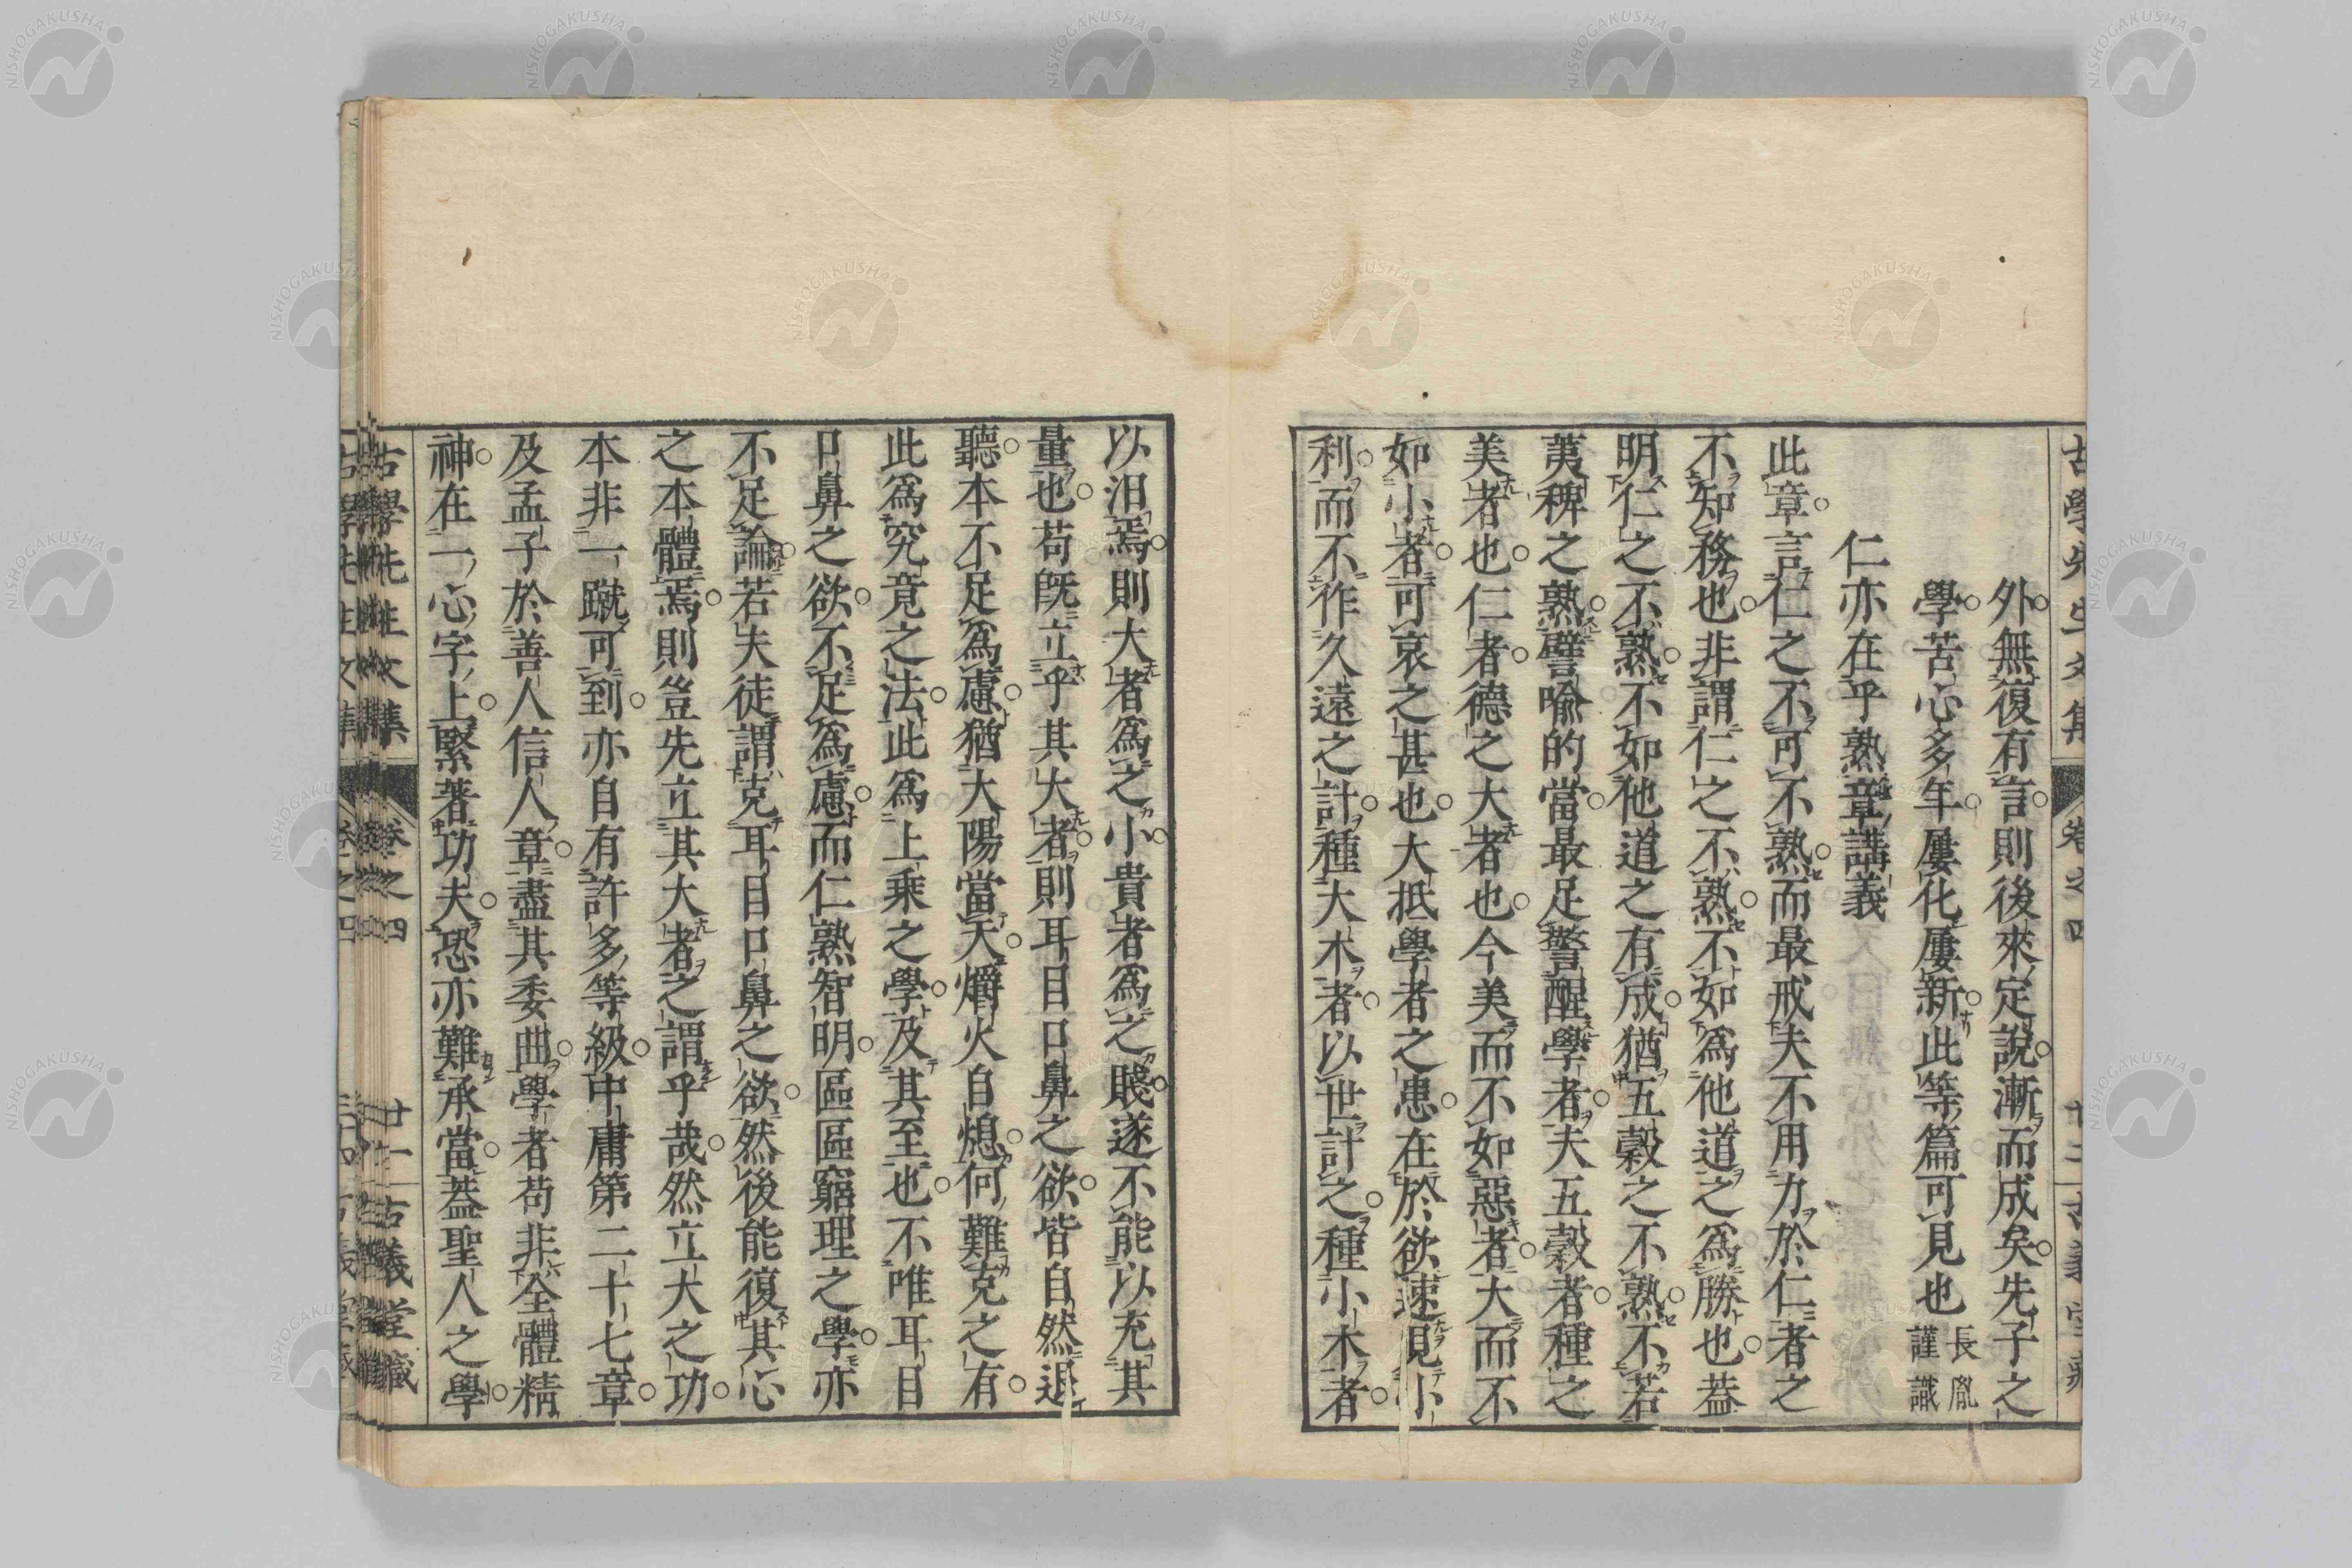 外無復有言則後來定說漸而成矣先子之
學苦心多年屢化屢新此等篇可見也長胤謹識
仁亦在乎熟章講義
此章言仁之不可不熟而最戒夫不用力於仁者之
不知務也非謂仁之不熟不如為他道之為勝也蓋
明仁之不熟不如他道之有成猶五穀之不熟不若
荑稗之熟譬喻的當最足警醒學者夫五穀者種之
美者也仁者德之大者也今美而不如惡者大而不
如小者可哀之甚也大抵學者之患在於欲速見小
利而不作久遠之計種大木者以世計之種小木者
以汨焉則大者為之小貴者為之賤遂不能以充其
量也苟既立乎其大者則耳目口鼻之欲皆自然退
聽本不足為慮猶大陽當天爝火自熄何難克之有
此為究竟之法此為上乘之學及其至也不唯耳目
口鼻之欲不足為慮而仁熟智明區區窮理之學亦
不足論若夫徒謂克耳目口鼻之欲然後能復其心
之本體焉則豈先立其大者之謂乎哉然立大之功
本非一蹴可到亦自有許多等級中庸第二十七章
及孟子於善人信人章盡其委曲學者苟非全體精
神在一心字上緊著功夫恐亦難承當蓋聖人之學
古學先生文集 卷之四 廿一 古義堂藏